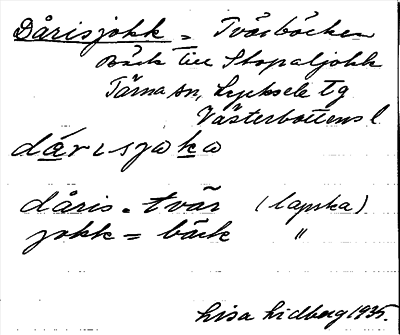 Dårisjokk = Tvärbäcken
Bäck till Skopaljokk
Tärna sn, Lycksele tg
Västerbottens l.
dárisjoka
dåris = tvär (lapska)
jokk = bäck "
Lisa Lidberg 1935.